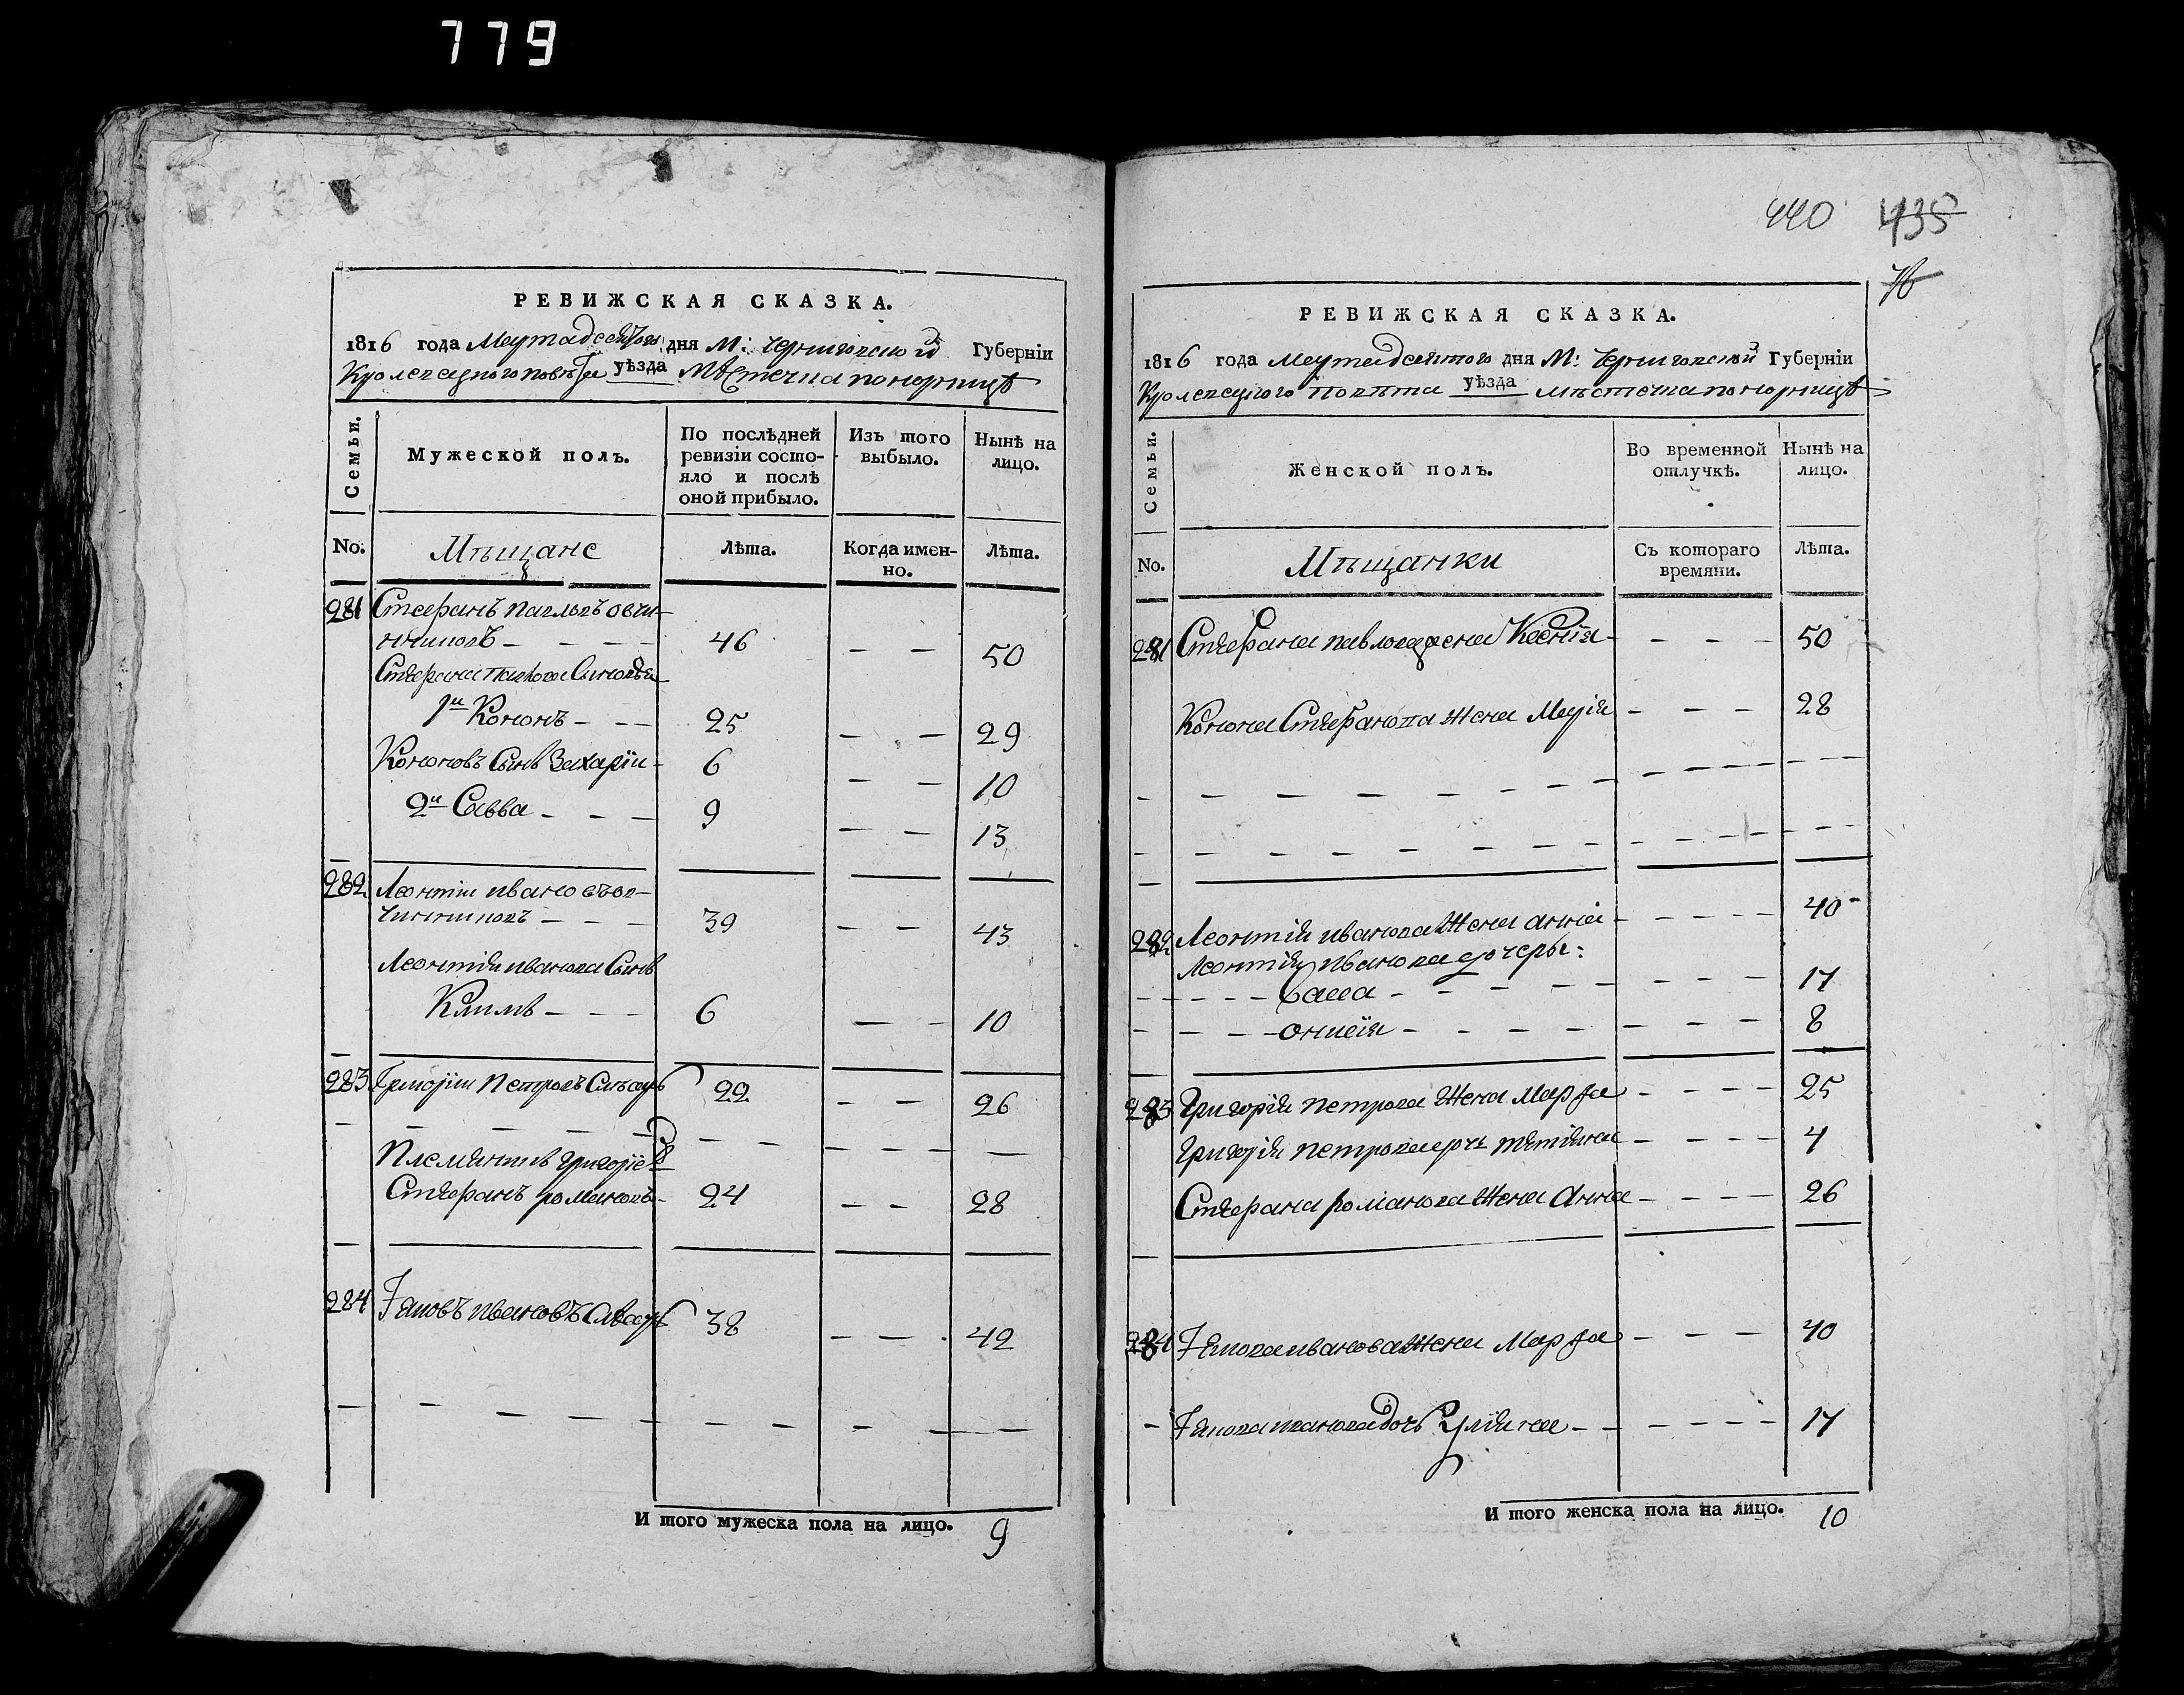 779
440 435
РЕВИЖСКАЯ СКАЗКА.
1816 года Марта десятого дня М: Черниговской Губерніи
Кролевецкого повѣта уѣзда Мѣстечка понорницѣ
Семьи.
Мужеской полъ.
По послѣдней ревизіи состояло и послѣ оной прибыло.
Изъ того выбыло.
Нынѣ на лицо.
No. Мѣщане Лѣта. Когда именно. Лѣта.
281 Стефанъ павловъ овчи-
нниковъ - - - - 46 - - 50
Стефана павлова Сыновья
1й Кононъ - - - 25 - - 29
Кононовъ Сынъ Захарiи - 6 - - 10
2й Савва - - - 9 - - 13
282 Леонтiи ивановъ ов-
чинниковъ - - - 39 - - 43
Леонтiя иванова Сынъ
Климъ - - - 6 - - 10
283 Григорiи Петровъ 22 - - 26
Племянникъ григорiевъ
Стефанъ романовъ - 24 - - 28
284 Яковъ ивановъ 38 - - 42
И того мужеска пола на лицо. 9
РЕВИЖСКАЯ СКАЗКА.
1816 года Марта десятого дня М: Черниговской Губерніи
Кролевецкого повѣта уѣзда мѣстечка понорницѣ
Семьи.
Женской полъ.
Во временной отлучкѣ.
Нынѣ на лицо.
No. Мѣщанки Съ котораго времяни. Лѣта.
281 Стефана павлова жена Ксенiя - - - - 50
Конона Стефанова жена Марiя - - - 28
282 Леонтiя иванова жена анна - - - - 40
Леонтiя иванова дочеры:
- - - - - - - - - 17
- - - - - - - - - 8
283 Григорiя петрова жена Марфа - - - - 25
Григорiя петрова дочь татiяна - - - - 4
Стефана романова жена Анна - - - - 26
284 Якова иванова жена Марфа - - - 40
- Якова иванова дочь Улiяна - - - - - - 17
И того женска пола на лицо. 10